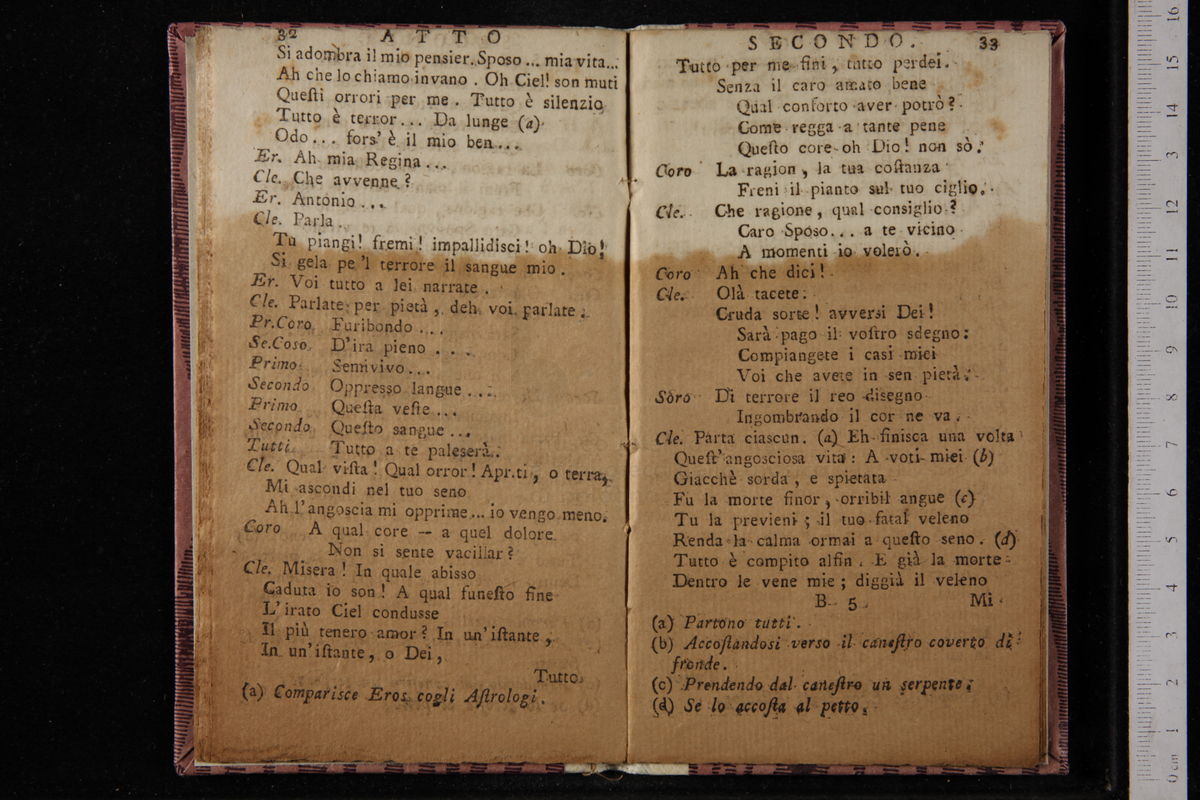 32 ATTO
Si adombra il mio pensier. Sposo ... mia vita...
Ah che lo chiamo invano . Oh Ciel! son muti
Questi orrori per me . Tutto è silenzio
Tutto è terror... Da lunge (a)
Odo... fors' è il mio ben...
Er. Ah mia Regina...
Cle. Che avvenne?
Er. Antonio...
Cle. Parla
Tu piangi! fremi! impallidisci! oh Dio!
Si gela pe 'l terrore il sangue mio.
Er. Voi tutto a lei narrate.
Cle. Parlate per pietà, deh voi parlate.
Pr.Coro Furibondo...
Se.Coso D'ira pieno....
Primo Semivivo...
Secondo Oppresso langue....
Primo Questa veste...
Secondo Questo sangue...
Tutti Tutto a te paleserà.
Cle. Qual vista! Qual orror! Apr.ti, o terra,
Mi ascondi nel tuo seno
Ah l'angoscia mi opprime... io vengo meno.
Coro A qual core — a quel dolore
Non si sente vacillar?
Cle. Misera! In quale abisso
Caduta io son! A qual funesto fine
L'irato Ciel condusse
Il più tenero amor? In un'istante,
In un'istante, o Dei,
Tutto
(a) Comparisce Eros cogli Astrologi.
SECONDO. 33
Tutto per me fini, tutto perdei.
Senza il caro amato bene
Qual conforto aver potrò?
Come regga a tante pene
Questo core oh Dio! non sò.
Coro La ragion, la tua costanza
Freni il pianto sul tuo ciglio.
Cle. Che ragione, qual consiglio?
Caro Sposo... a te vicino
A momenti io volerò.
Coro Ah che dici!
Cle. Olà tacete:
Cruda sorte! avversi Dei!
Sarà pago il vostro sdegno:
Compiangete i casi miei
Voi che avete in sen pietà.
Soro Di terrore il reo disegno
Ingombrando il cor ne va.
Cle. Parta ciascun. (a) Eh finisca una volta
Quest'angosciosa vita: A voti miei (b)
Giacchè sorda, e spietata
Fu la morte finor, orribil angue (c)
Tu la previeni; il tuo fatal veleno
Renda la calma ormai a questo seno. (d)
Tutto è compito alfin. E già la morte
Dentro le vene mie; diggià il veleno
B 5 Mi
(a) Partono tutti.
(b) Accostandosi verso il canestro coverto di
fronde.
(c) Prendendo dal canestro un serpente.
(d) Se lo accosta al petto.
16
15
14
13
12
11
10
9
8
7
6
5
4
3
2
1
0 cm